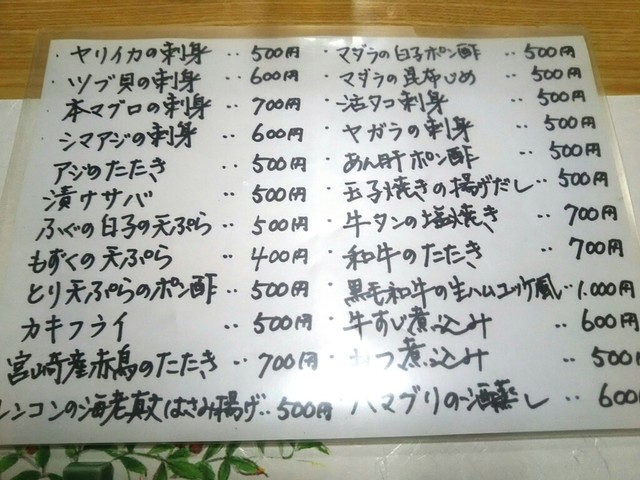 ・ヤリイカの刺身 ‥ 500円
・ツブ貝の刺身 ‥ 600円
・本マグロの刺身 ‥ 700円
・シマアジの刺身 ‥ 600円
アジのたたき ‥ 500円
漬けサバ ‥ 500円
ふぐの白子の天ぷら ‥ 500円
もずくの天ぷら ‥ 400円
とり天ぷらのポン酢 ‥ 500円
カキフライ ‥ 500円
宮崎産赤鳥のたたき ‥ 700円
レンコンの海老真丈はさみ揚げ ‥ 500円
・マダラの白子ポン酢 ‥ 500円
・マダラの昆布じめ ‥ 500円
・活タコ刺身 ‥ 500円
・ヤガラの刺身 ‥ 500円
・あん肝ポン酢 ‥ 500円
・玉子焼きの揚げだし ‥ 500円
・牛タンの塩焼き ‥ 700円
・和牛のたたき ‥ 700円
・黒毛和牛の生ハムユッケ風 ‥ 1.000円
・牛すじ煮込み ‥ 600円
もつ煮込み ‥ 500円
・ハマグリの酒蒸し ‥ 600円